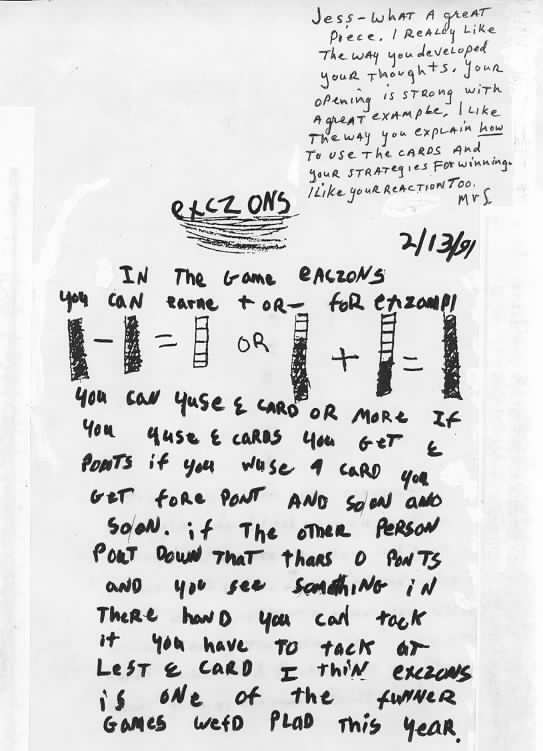 Jess - WHAT A GREAT
Piece. I REALLY LIKE
THE WAY you developed
youR Thoughts. youR
opening is STRONG WITH
A gREAT EXAMPLE. I LIKE
THE WAY you EXPLAIN how
To use THE CARDS AND
youR STRATEgies FoR winning.
I LIKE youR REACTION TOO.
MrS
exczONS
2/13/91
IN The Game eACZONS
you CAN earne + OR - foR exzampl
- = OR + =
you CAN yuse & CARD OR MORE If
you yuse & CARDS you GeT &
PONTS if you wuse 9 CARD you
GeT foRe PONT AND SO/ON AND
SO/ON. if THe OTHeR PeRSON
PouT DOWN THAT thars 0 PONTS
AND you see SomeTHING iN
THeRe hanD you can tack
it you have TO tack aT
LeST & CARD I thiN exczONS
is ONe of the fuNNeR
GAMeS wefD PLaD THiS yeaR.